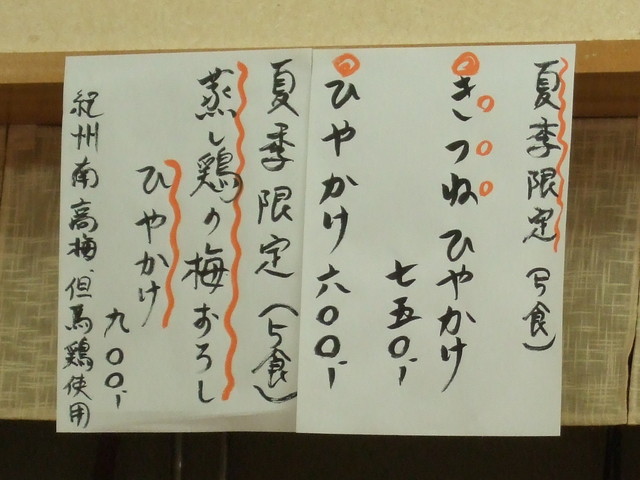 夏季限定（5食）
きつねひやかけ
七五〇、
ひやかけ 六〇〇、
夏季限定（5食）
蒸し鶏の梅おろし
ひやかけ
九〇〇、
紀州南高梅、但馬鶏使用